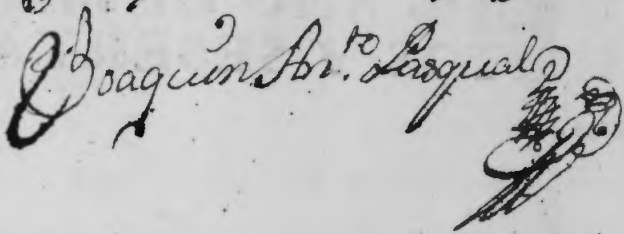 Joaquin An.to Pasqual